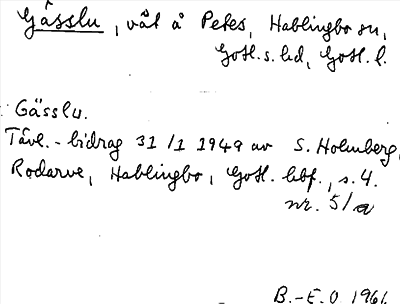 Gåsslu, vät å Petes, Hablingbo sn,
Gotl. s. hd, Gotl. l.
Gässlu.
Tävl.-bidrag 31/1 1949 av S. Holmberg,
Rodarve, Hablingbo, Gotl. lbf., s. 4.
nr. 5/a
B.-E. O 1961.